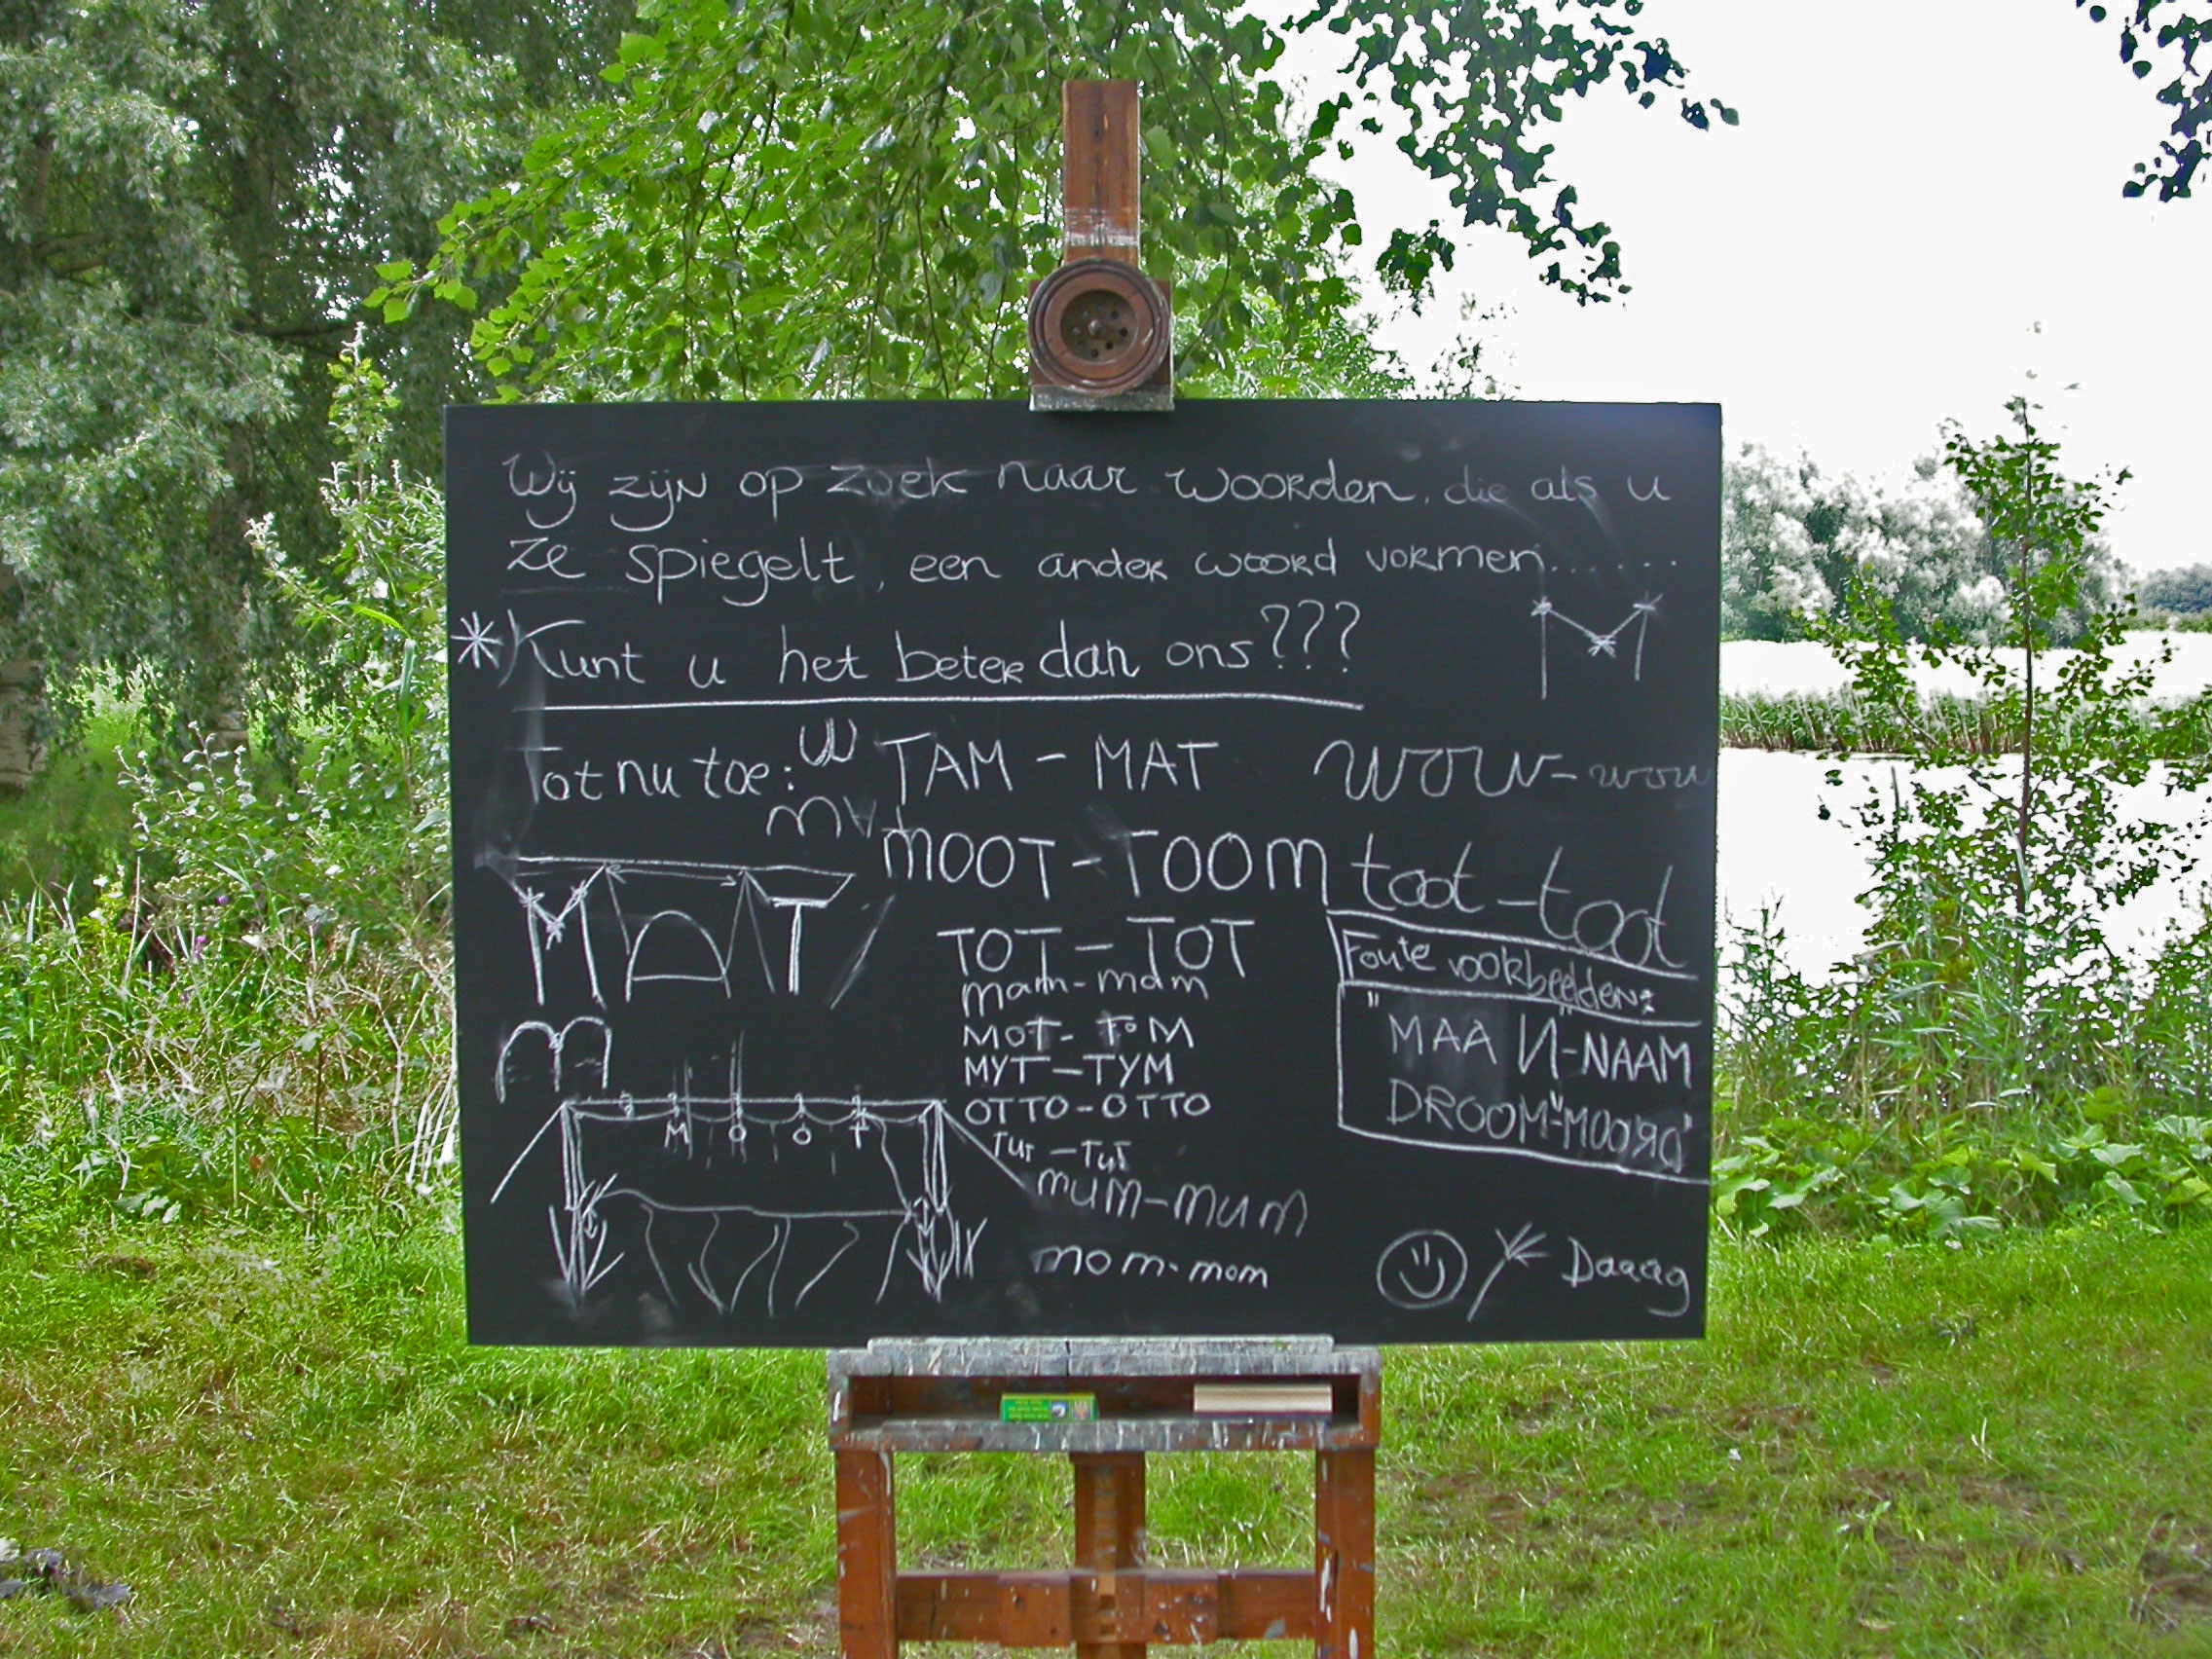 Wij zijn op zoek naar woorden, die als u
ze spiegelt, een ander woord vormen......
*) Kunt u het beter dan ons???
M
Tot nu toe: W TAM - MAT
wow - wow
M V
MOOT - TOOM
toot - toot
MAT
TOT - TOT
mam - mam
MOT - TOM
MYT - TYM
OTTO - OTTO
TUT - TUT
mum - mum
mom - mom
Foute voorbeelden:
"MAAИ" - NAAM
DROOM - "MOOЯD"
M
M O O T
Daaag